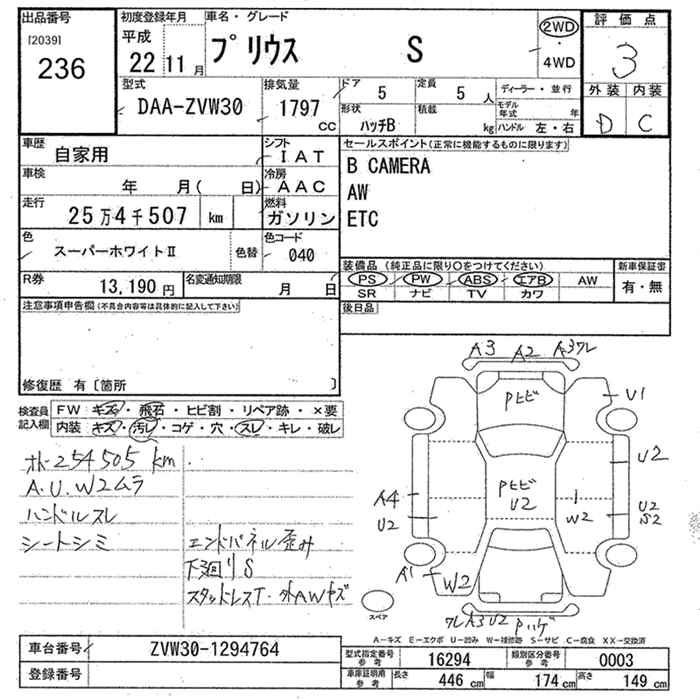 出品番号
[2039]
236
初度登録年月
平成
22 11 月
車名・グレード
プリウス S
2WD
4WD
評価点
3
外装 内装
D C
型式
DAA-ZVW30
排気量
1797
CC
ドア
5
定員
5 人
形状
ハッチB
積載
kg
ディーラー・並行
モデル年式 年
ハンドル 左・右
車歴
自家用
シフト
IAT
車検
年 月( 日)
冷房
AAC
走行
25万4千507 km
燃料
ガソリン
色
スーパーホワイトⅡ
色替
色コード
040
R券
13,190 円
名変通知期限
月 日
セールスポイント(正常に機能するものに限ります)
B CAMERA
AW
ETC
装備品(純正品に限り○をつけてください)
PS PW ABS エアB AW
SR ナビ TV カワ
新車保証書
有・無
後日品
注意事項申告欄(不具合内容等は具体的に記入して下さい)
修復歴 有〔箇所 〕
検査員
記入欄
FW キズ・飛石・ヒビ割・リペア跡・×要
内装 キズ・汚レ・コゲ・穴・スレ・キレ・破レ
オドー254505 km
A.U.W2ムラ
ハンドルスレ
シートシミ
エンドパネル歪み
下廻りS
スタッドレスT・外AWキズ
A3 A2 A3ワレ
Pヒビ
U1
U2
Pヒビ
U2
A4
U2
W2
U2
S2
A1
W2
ワレA3 U2 Pハゲ
スペア
A-キズ E-エクボ U-凹み W-補修跡 S-サビ C-腐食 XX-交換済
車台番号
ZVW30-1294764
登録番号
型式指定番号
参考
16294
類別区分番号
参考
0003
車庫証明用
参考
長さ
446 cm
幅
174 cm
高さ
149 cm